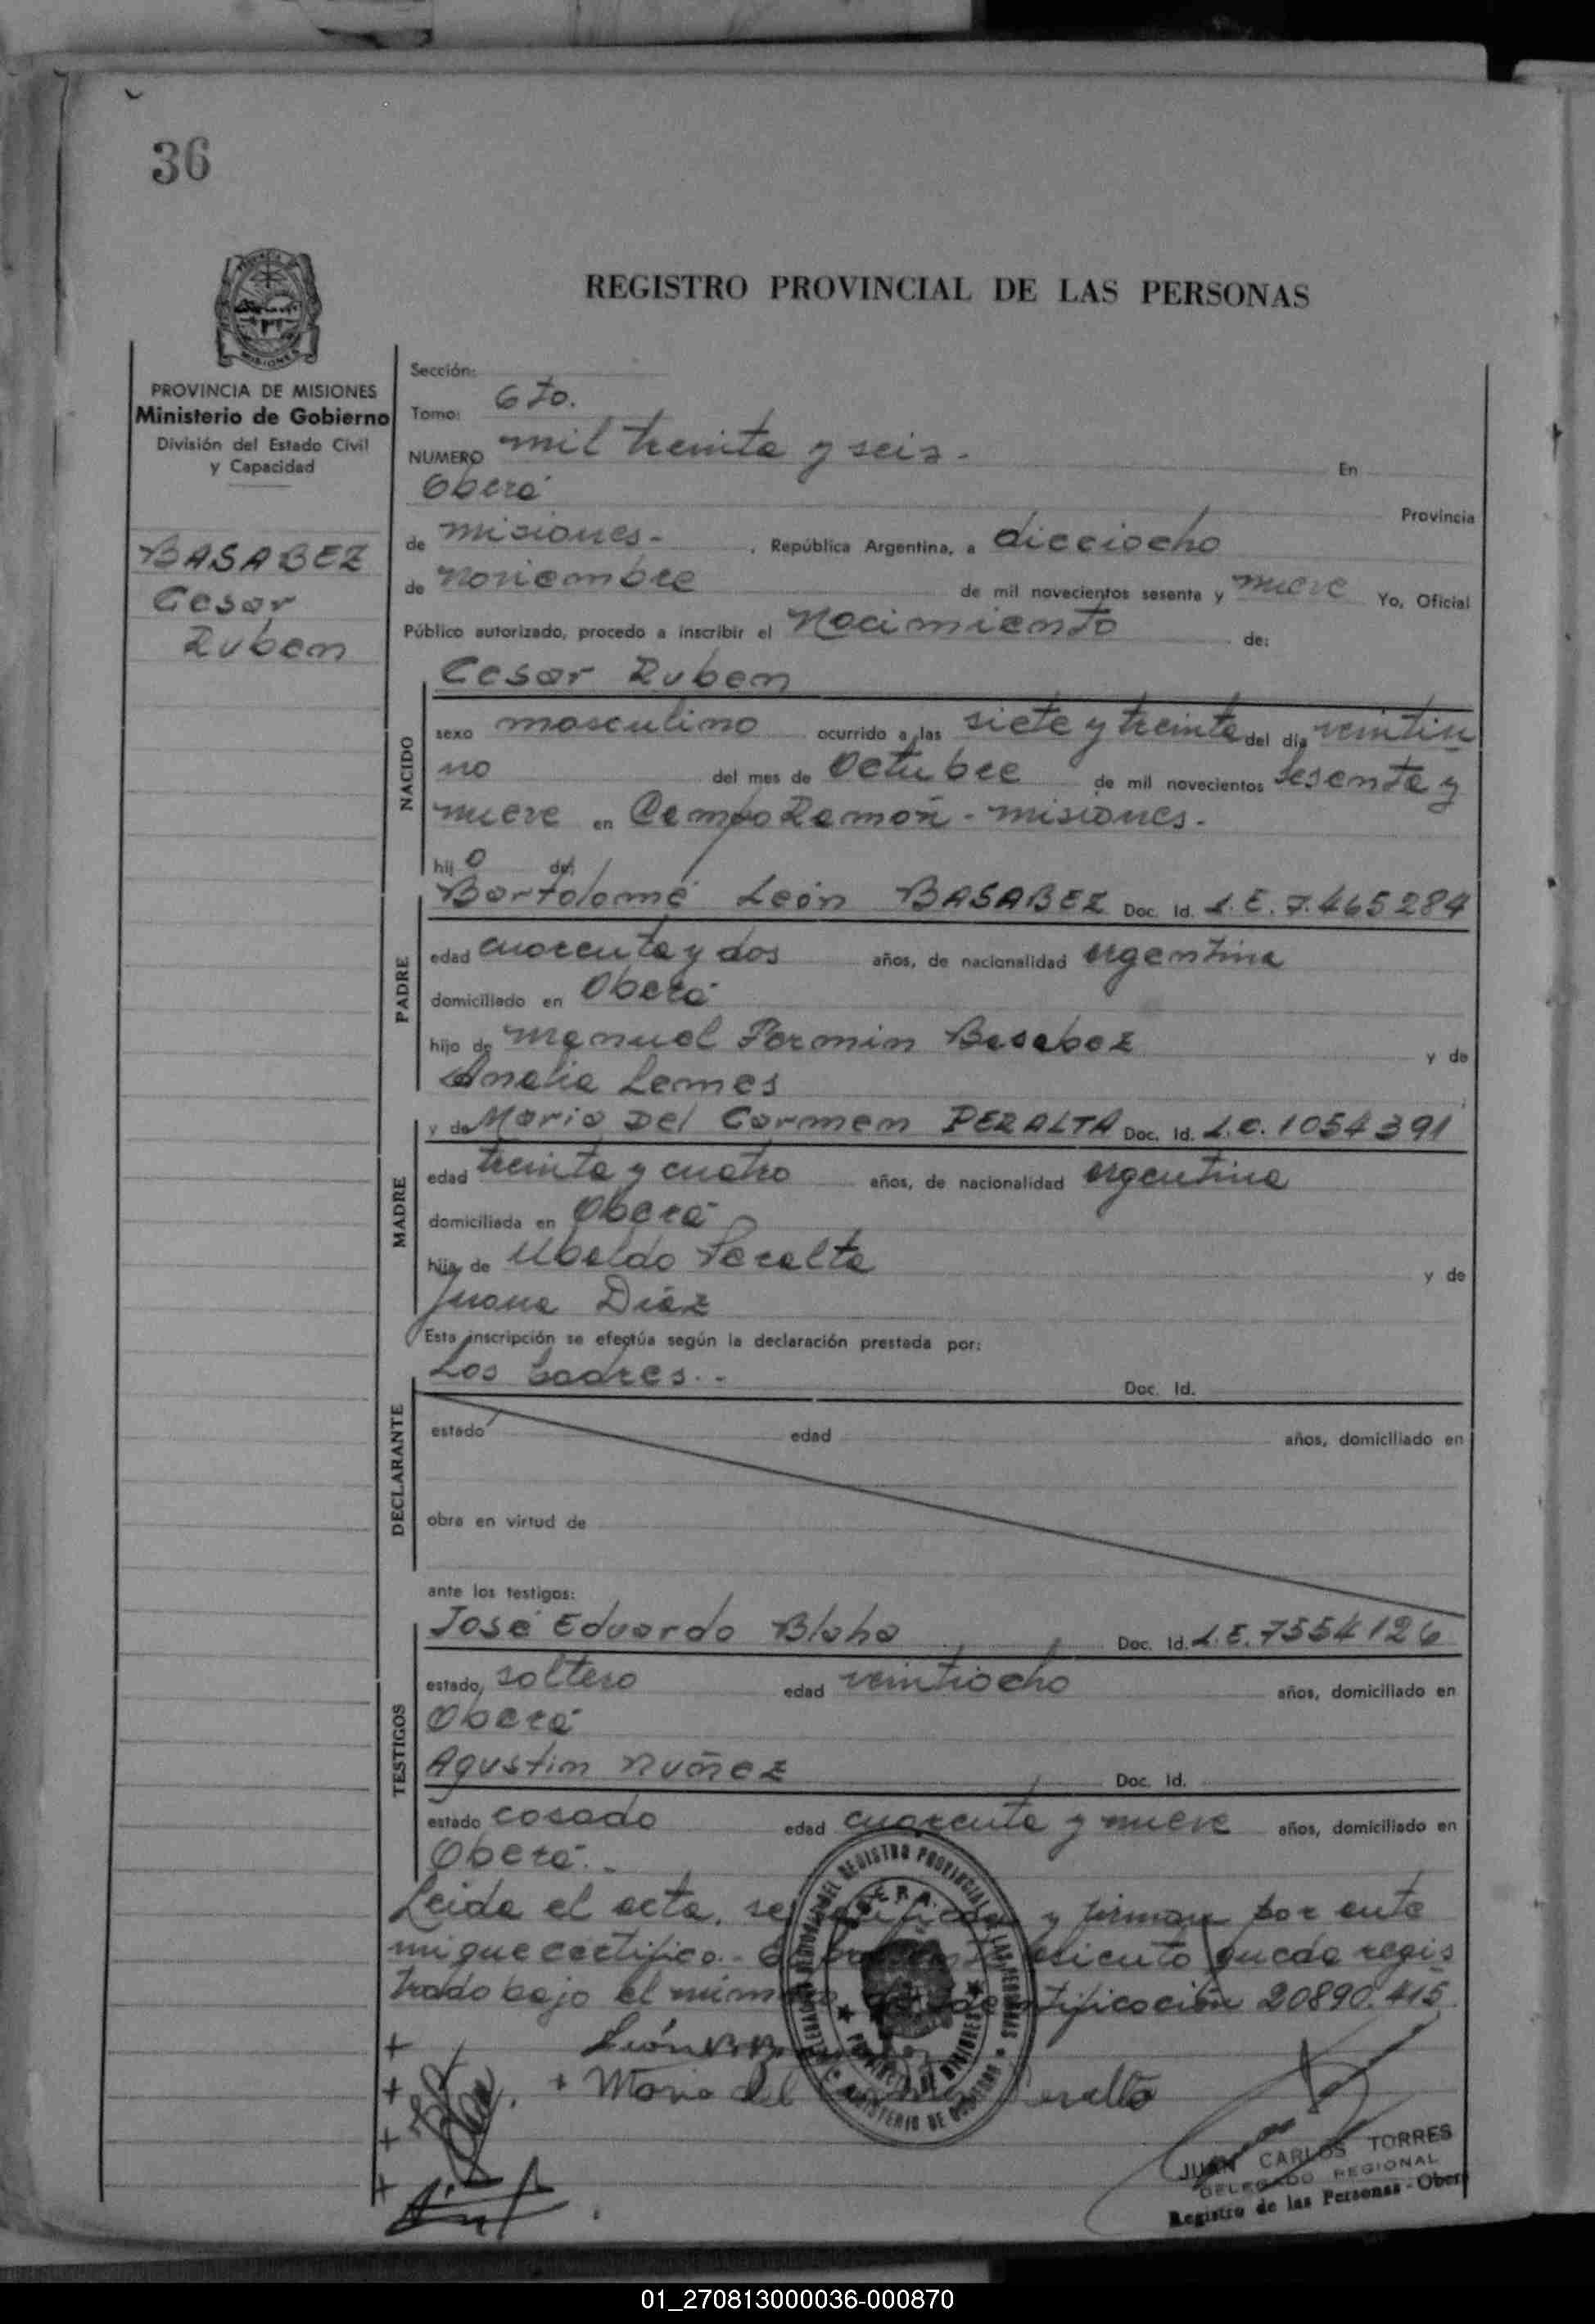 36
REGISTRO PROVINCIAL DE LAS PERSONAS
MISIONES
PROVINCIA DE MISIONES
Ministerio de Gobierno
División del Estado Civil
y Capacidad
BASABEZ
Cesar
Ruben
Sección:
Tomo: 6to.
NUMERO mil treinta y seis - En
Oberá Provincia
de misiones - , República Argentina, a dieciocho
de noviembre de mil novecientos sesenta y nueve Yo, Oficial
Público autorizado, procedo a inscribir el Nacimiento de:
Cesar Ruben
NACIDO
sexo masculino ocurrido a las siete y treinta del día veintiu
no del mes de Octubre de mil novecientos sesenta y
nueve en Campo Ramón - misiones.
hijo de:
Bartolomé León BASABEZ Doc. Id. L.E. 7.465284
PADRE
edad cuarenta y dos años, de nacionalidad argentina
domiciliado en Oberá
hijo de Manuel Fermin Basabez y de
Analia Lemes
y de Maria Del Carmen PERALTA Doc. Id. L.C. 1054391
MADRE
edad treinta y cuatro años, de nacionalidad argentina
domiciliada en Oberá
hija de Ubaldo Peralta y de
Juana Diaz
Esta inscripción se efectúa según la declaración prestada por:
Los Padres. - Doc. Id.
DECLARANTE
estado edad años, domiciliado en
obra en virtud de
ante los testigos:
José Eduardo Blaha Doc. Id. L.E. 7554126
TESTIGOS
estado, soltero edad veintiocho años, domiciliado en
Oberá
Agustin Nuñez Doc. Id.
estado casado edad cuarenta y nueve años, domiciliado en
Oberá. -
Leida el acta, se ratifican y firman por ante
mi que certifico. - queda regis
trado bajo el número de identificación 20890.415
León
+ Maria del Peralta
JUAN CARLOS TORRES
DELEGADO REGIONAL
Registro de las Personas - Oberá
01_270813000036-000870